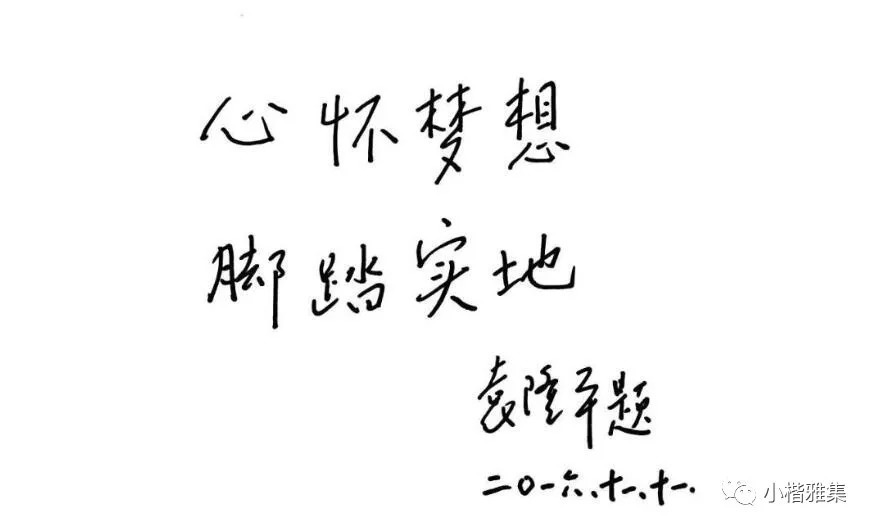 心怀梦想
脚踏实地
袁隆平题
二〇一六、十一、十一.
小楷雅集